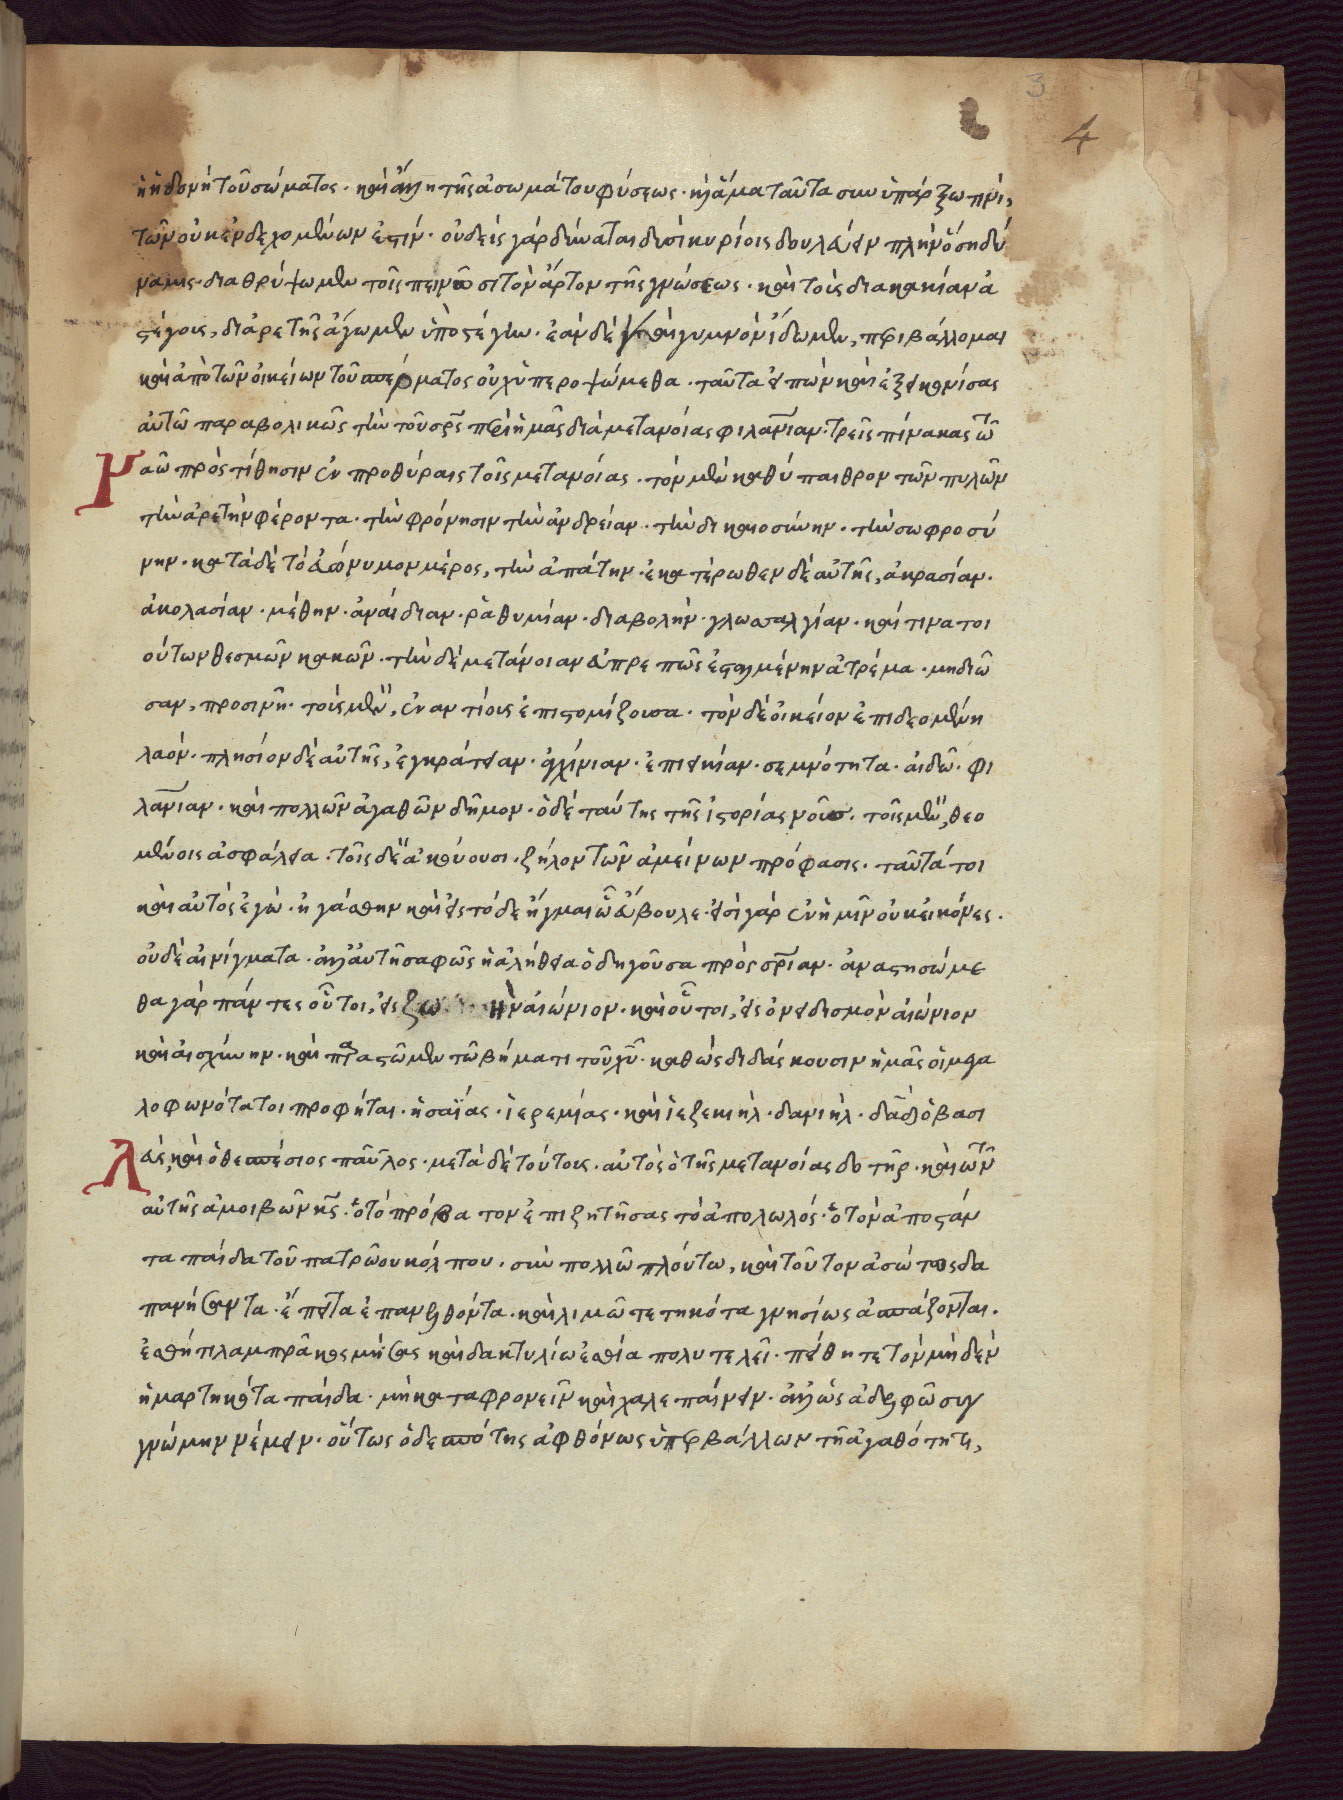 3
4
ἡ ἡδονὴ τοῦ σώματος· καὶ ἄλλη τῆς ἀσωμάτου φύσεως· καὶ ἅμα ταῦτα συνυπάρξω τινί,
τῶν οὐκ ἐνδεχομένων ἐστίν· οὐδεὶς γὰρ δύναται δυσὶ κυρίοις δουλεύειν πλὴν ὅση δύ
ναμις· διαθρύψωμεν τοῖς πεινῶσι τὸν ἄρτον τῆς γνώσεως· καὶ τοὺς διὰ κακίαν ἀ
στέγους, δι' ἀρετῆς ἀγάγωμεν ὑπὸ στέγην· ἐὰν δὲ καὶ γυμνὸν ἴδωμεν, περιβάλλομαι
καὶ ἀπὸ τῶν οἰκείων τοῦ σπέρματος οὐχ ὑπεροψώμεθα· ταῦτα εἰπὼν καὶ ἐξεικονίσας
αὐτῶ παραβολικῶς τὴν τοῦ σρς περὶ ἡμᾶς διὰ μετανοίας φιλανιαν· τρεῖς πίνακας τῶ
Ναῶ προστίθησιν ἐν προθύραις τοῖς μετανοίας· τὸν μὲν καθύπαιθρον τῶν πυλῶν
τὴν ἀρετὴν φέροντα· τὴν φρόνησιν τὴν ἀνδρείαν· τὴν δικαιοσύνην· τὴν σωφροσύ
νην· κατὰ δὲ τὸ εὐώνυμον μέρος, τὴν ἀπάτην· ἑκατέρωθεν δὲ αὐτῆς, ἀκρασίαν·
ἀκολασίαν· μέθην· ἀναίδιαν· ῥαθυμίαν· διαβολὴν· γλωσσαλγίαν· καί τινα τοι
ούτων θεσμῶν κακῶν· τὴν δὲ μετάνοιαν εὐπρεπῶς ἐσταλμένην ἀτρέμα· μηδιῶ
σαν, προσινῆ· τοῖς μὲν, ἐναντίοις ἐπιστομίζουσα· τὸν δὲ οἰκεῖον ἐπιδεομένη
λαόν· πλησίον δὲ αὐτῆς, ἐγκράτειαν· ἀγχίνιαν· ἐπιείκιαν· σεμνότητα· αἰδῶ· φι
λανιαν· καὶ πολλῶν ἀγαθῶν δῆμον· ὁ δὲ ταύτης τῆς ἱστορίας νοῦς· τοῖς μὲν, θεο
μένοις ἀσφάλεια· τοῖς δὲ ἀκούουσι· ζῆλον τῶν ἀμεινόνων πρόφασις· ταῦτά τοι
καὶ αὐτὸς ἐγὼ· ἠγάσθην καὶ εἰς τόδε ἦγμαι ὦ εὔβουλε· εἰσὶ γὰρ ἐν ἡμῖν οὐκ εἰκόνες·
οὐδὲ αἰνίγματα· ἀλλ' αὐτὴ σαφῶς ἡ ἀλήθεια ὁδηγοῦσα πρὸς σριαν· ἀναστησώμε
θα γὰρ πάντες οὗτοι, εἰς ζωὴν αἰώνιον· καὶ οὗτοι, εἰς ὀνειδισμὸν αἰώνιον
καὶ αἰσχύνην· καὶ παραστῶμεν τῶ βήματι τοῦ χυ· καθὼς διδάσκουσιν ἡμᾶς οἱ μεγα
λοφωνότατοι προφῆται· ἡσαΐας· ἱερεμίας· καὶ ἰεζεκιὴλ· δανιὴλ· δαδ ὁ βασι
Λεὺς, καὶ ὁ θεσπέσιος παῦλος· μετὰ δὲ τούτοις· αὐτὸς ὁ τῆς μετανοίας δοτῆρ· καὶ τῶν
αὐτῆς ἀμοιβῶν κς· ὁ τὸ πρόβατον ἐπιζητήσας τὸ ἀπολωλός· ὁ τὸν ἀποστάν
τα παῖδα τοῦ πατρώου κόλπου· σὺν πολλῶ πλούτω, καὶ τοῦτον ἀσώτως δα
πανήσαντα· ἔπειτα ἐπανελθόντα· καὶ λιμῶ τετηκότα γνησίως ἀσπάζονται·
ἐσθῆτι λαμπρᾶ κοσμήσας καὶ δακτυλίω ἑστία πολυτελεῖ· πείθη τε τὸν μηδὲν
ἡμαρτηκότα παῖδα· μὴ καταφρονεῖν καὶ χαλεπαίνειν· ἀλλ' ὡς ἀδελφῶ συγ
γνώμην νέμειν· οὕτως ὁ δεσπότης ἀφθόνως ὑπερβάλλων τῆ ἀγαθότητι,